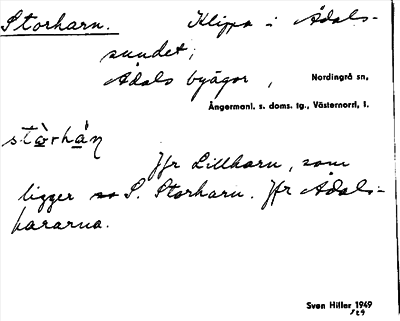 Storharn. Klippa i Ådals-
sundet;
Ådals byägor, Nordingrå sn,
Ångermanl. s. doms. tg., Västernorrl. l.
stòrhán
Jfr Lillharn, som
ligger so S. Storharn. Jfr Ådals-
hararna.
Sven Hiller 1949